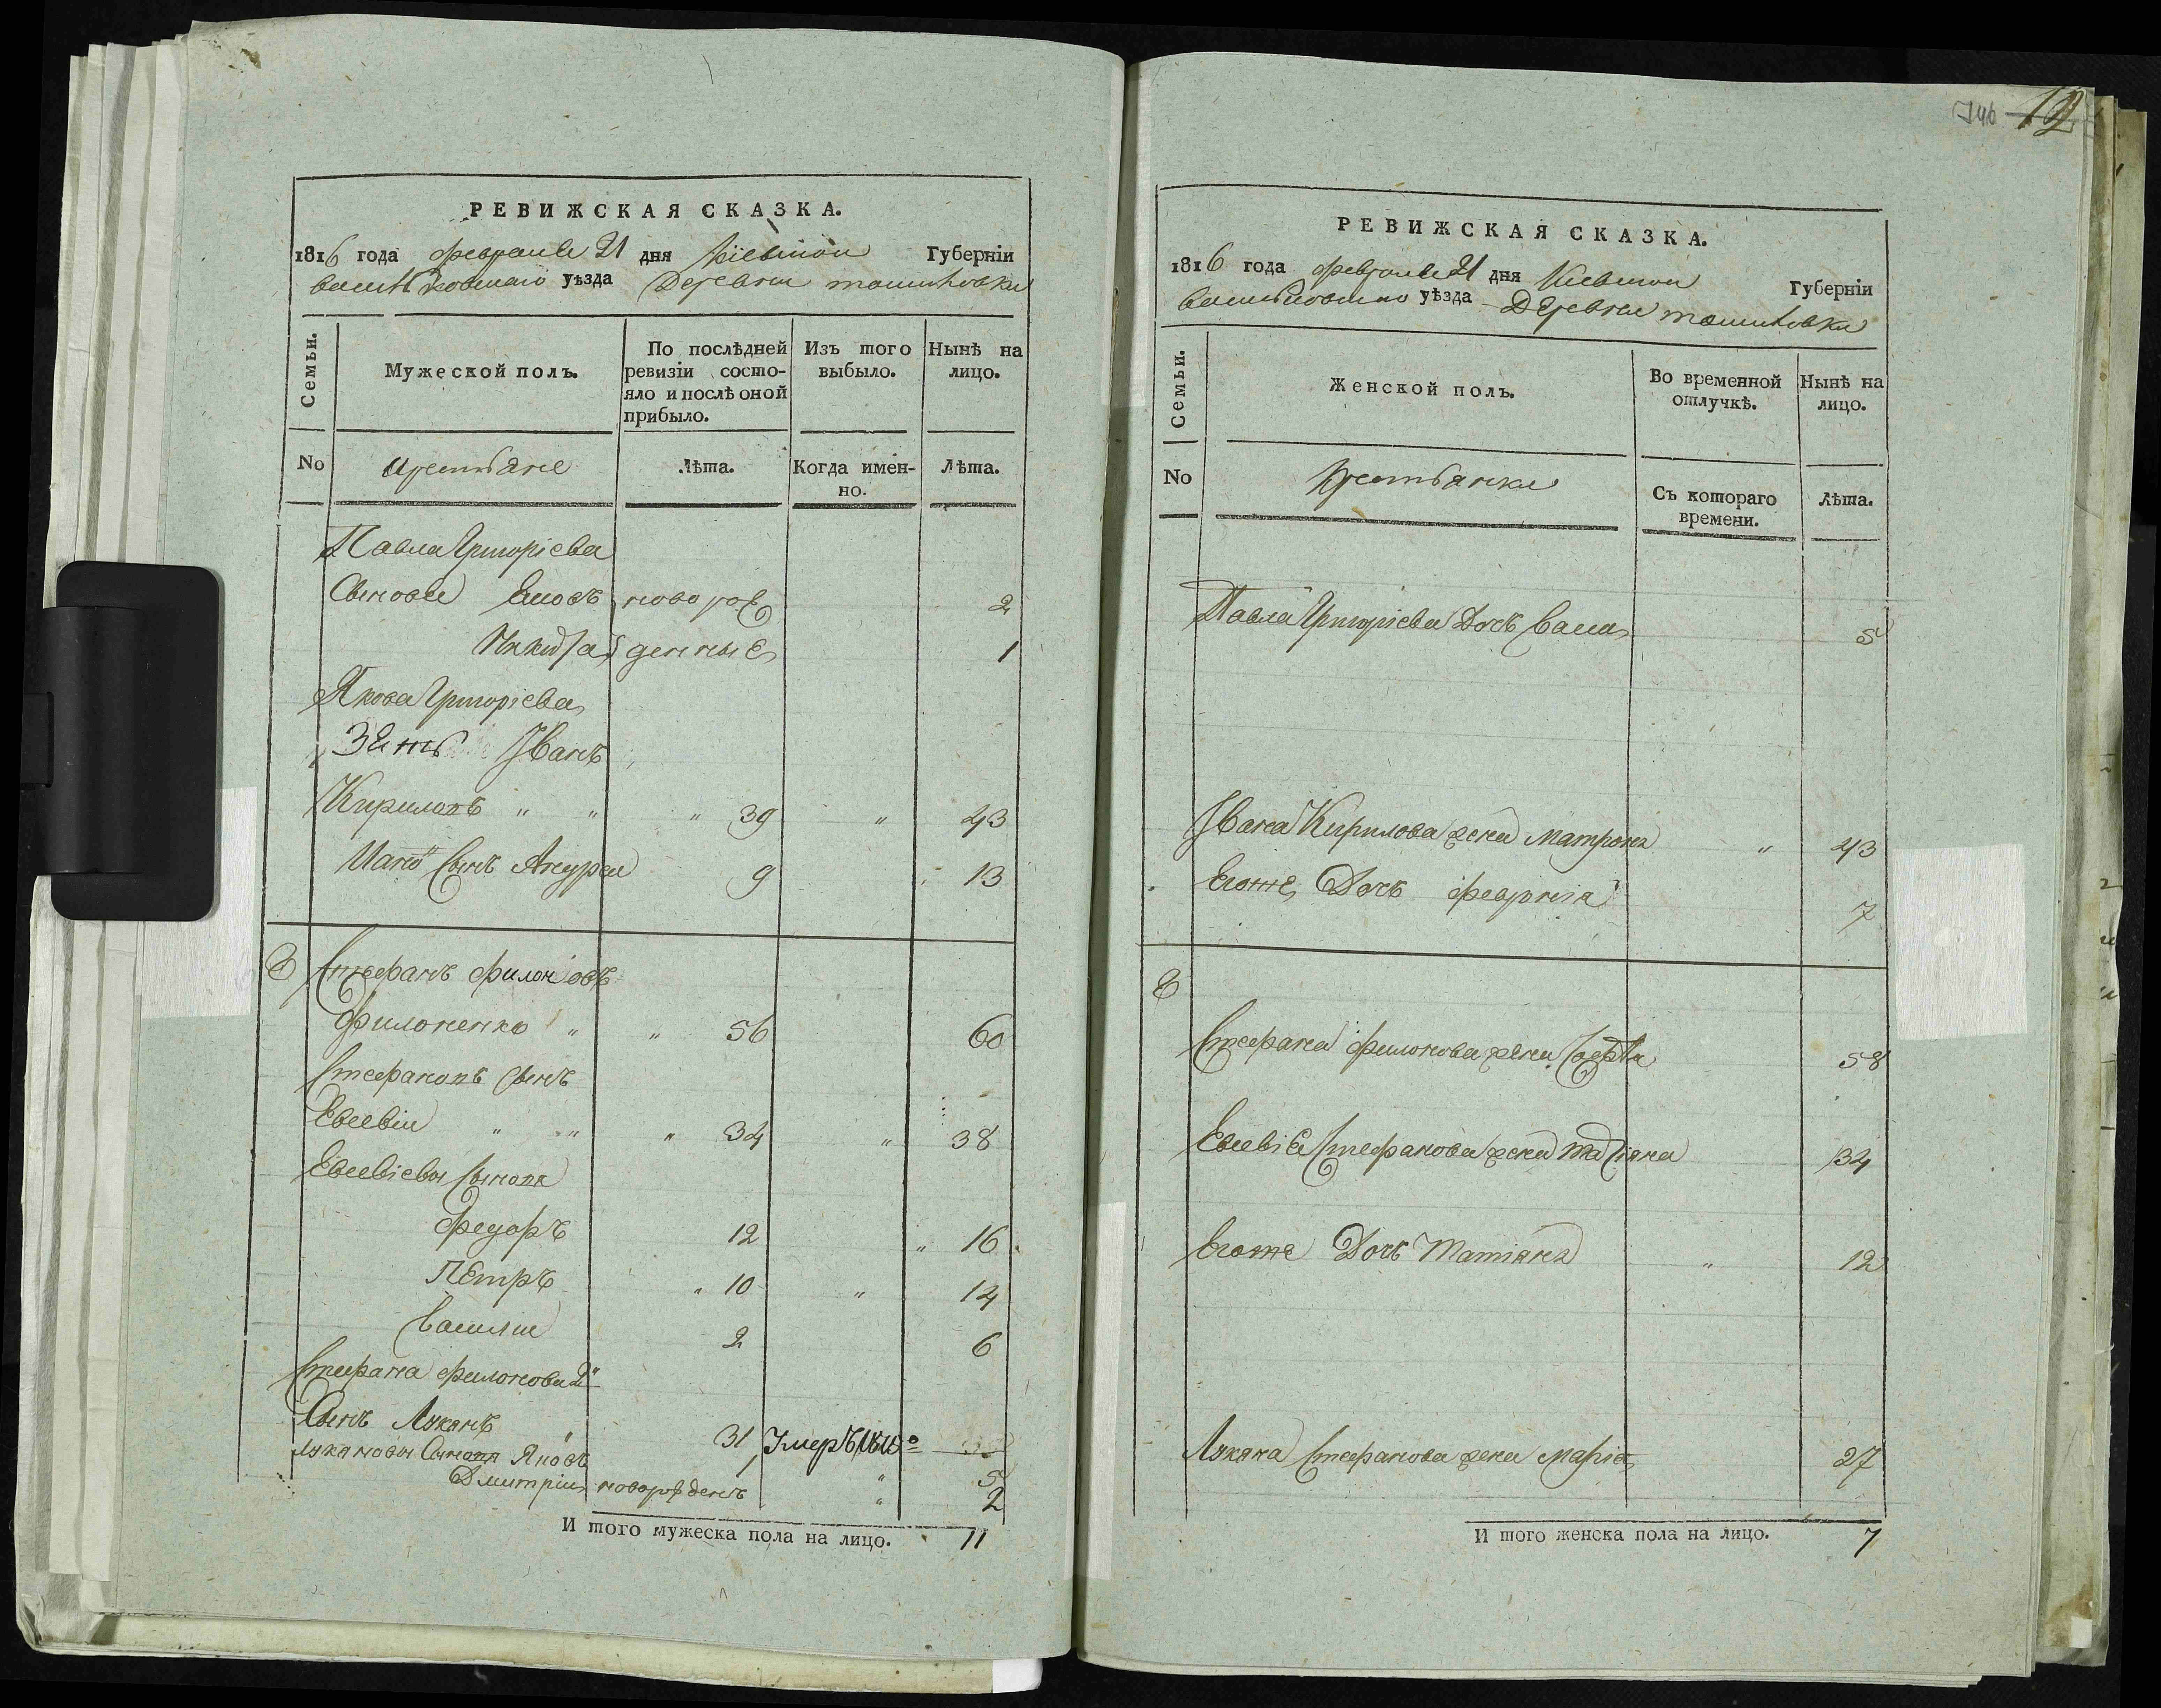 РЕВИЖСКАЯ СКАЗКА.
1816 года февраля 21 дня Кіевской Губерніи
васильковскаго уѣзда Деревни
Семьи.
Мужеской полъ.
По послѣдней ревизіи состояло и послѣ оной прибыло.
Изъ того выбыло.
Нынѣ на лицо.
No
крестьяне
Лѣта.
Когда именно.
Лѣта.
Павла Григоріева
Сынове Яковъ новорож 2
Никита денные 1
Якова Григоріева
Зять Іванъ
Кириловъ " " " 39 " 43
Иано Сынъ Андреи 9 13
8 Стефанъ филоновъ
Филоненко " " 56 60
Стефановъ сынъ
Евсевіи " " " 34 " 38
Евсевіевы сынова
Федоръ 12 " 16
Петръ " 10 " 14
Василии 2 6
Стефана филонова 2й
Сынъ Лукянъ 31 Умеръ
Лукяновы Сынова Яковъ 1 " 5
Дмитріи новорожденъ " 2
И того мужеска пола на лицо. 11
146 12
РЕВИЖСКАЯ СКАЗКА.
1816 года февраля 21 дня Кіевской Губерніи
васильковскаго уѣзда Деревни
Семьи.
Женской полъ.
Во временной отлучкѣ.
Нынѣ на лицо.
No
Крестьянки
Съ котораго времени.
Лѣта.
Павла Григоріева Дочъ 5
Івана Кирилова жена Матрона " 43
Егоже Дочъ февронія 7
8
Стефана филонова жена 58
Евсевіе Стефанова жена татіяна 34
Егоже Дочъ Матіяна " 12
Лукяна Стефанова жена Маріа 27
И того женска пола на лицо. 7